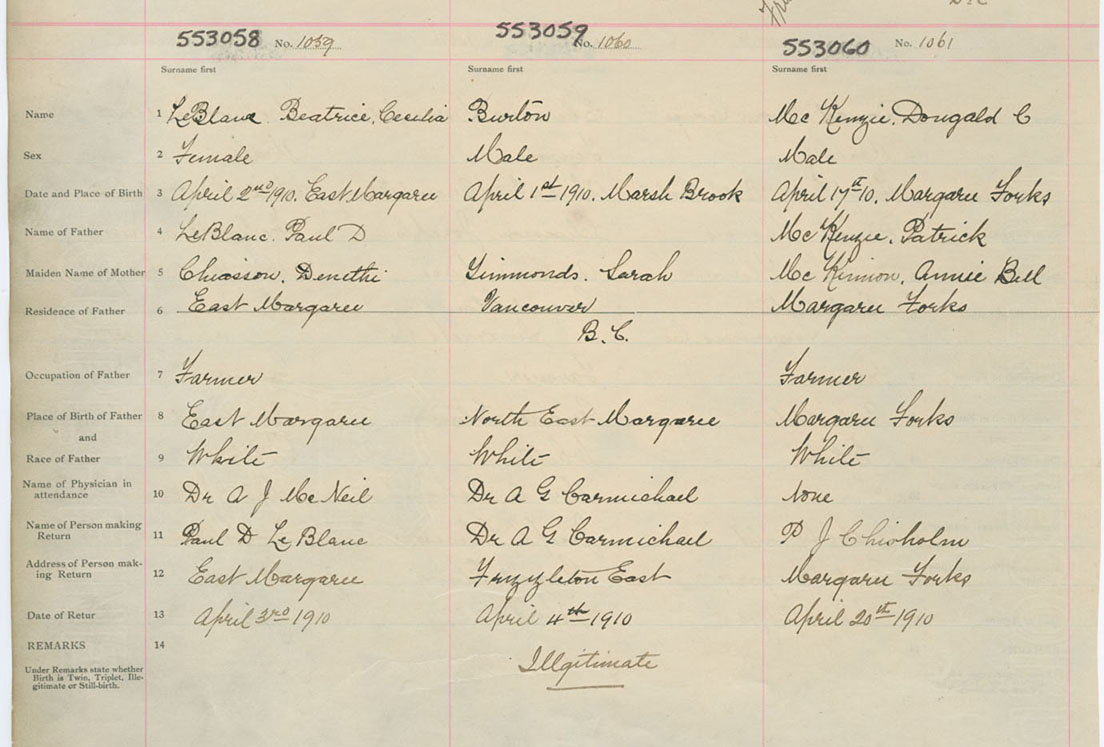 553058 No. 1059 553059 No. 1060 553060 No. 1061
Surname first Surname first Surname first
Name 1 LeBlanc Beatrice, Cecilia Burton Mc Kenzie, Dougald C
Sex 2 Female Male Male
Date and Place of Birth 3 April 2nd 1910. East Margaree April 1st 1910. Marsh Brook April 17th 10. Margaree Forks
Name of Father 4 LeBlanc. Paul D Mc Kenzie, Patrick
Maiden Name of Mother 5 Chiasson, Timmonds. Sarah Mc Kinnon, Annie Bell
Residence of Father 6 East Margaree Vancouver Margaree Forks
B. C.
Occupation of Father 7 Farmer Farmer
Place of Birth of Father 8 East Margaree North East Margaree Margaree Forks
and
Race of Father 9 White White White
Name of Physician in
attendance 10 Dr A J Mc Neil Dr A G Carmichael None
Name of Person making
Return 11 Paul D Le Blanc Dr A G Carmichael P J Chisholm
Address of Person mak-
ing Return 12 East Margaree Frizzleton East Margaree Forks
Date of Retur 13 April 3rd 1910 April 4th 1910 April 20th 1910
REMARKS 14
Under Remarks state whether
Birth is Twin, Triplet, Ille-
gitimate or Still-birth.
Illgitimate